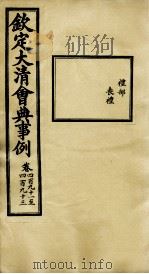 欽定大清會典事例
卷四百九十一至
四百九十三
禮部
喪禮